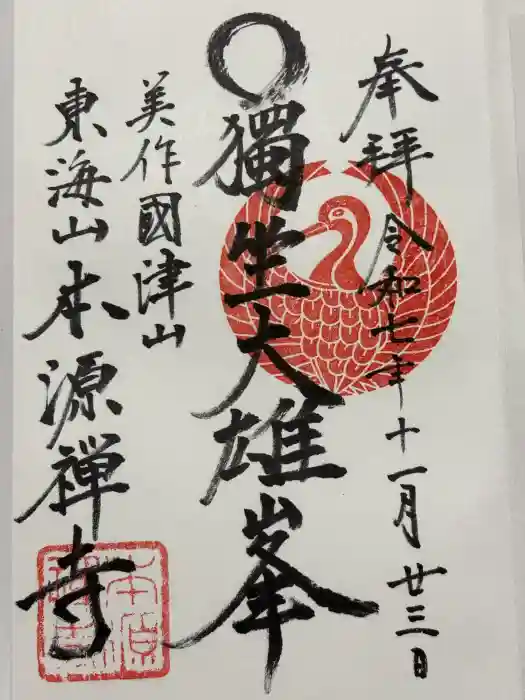 奉拝 令和七年十一月廿三日
獨坐大雄峯
美作國津山
東海山本源禅寺
本源禅寺